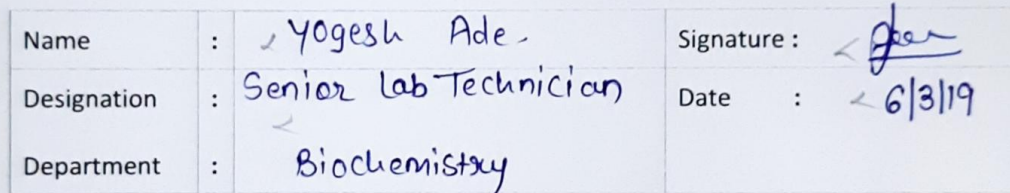 Name : Yogesh Ade. Signature :
Designation : Senior Lab Technician Date : 6/3/19
Department : Biochemistry